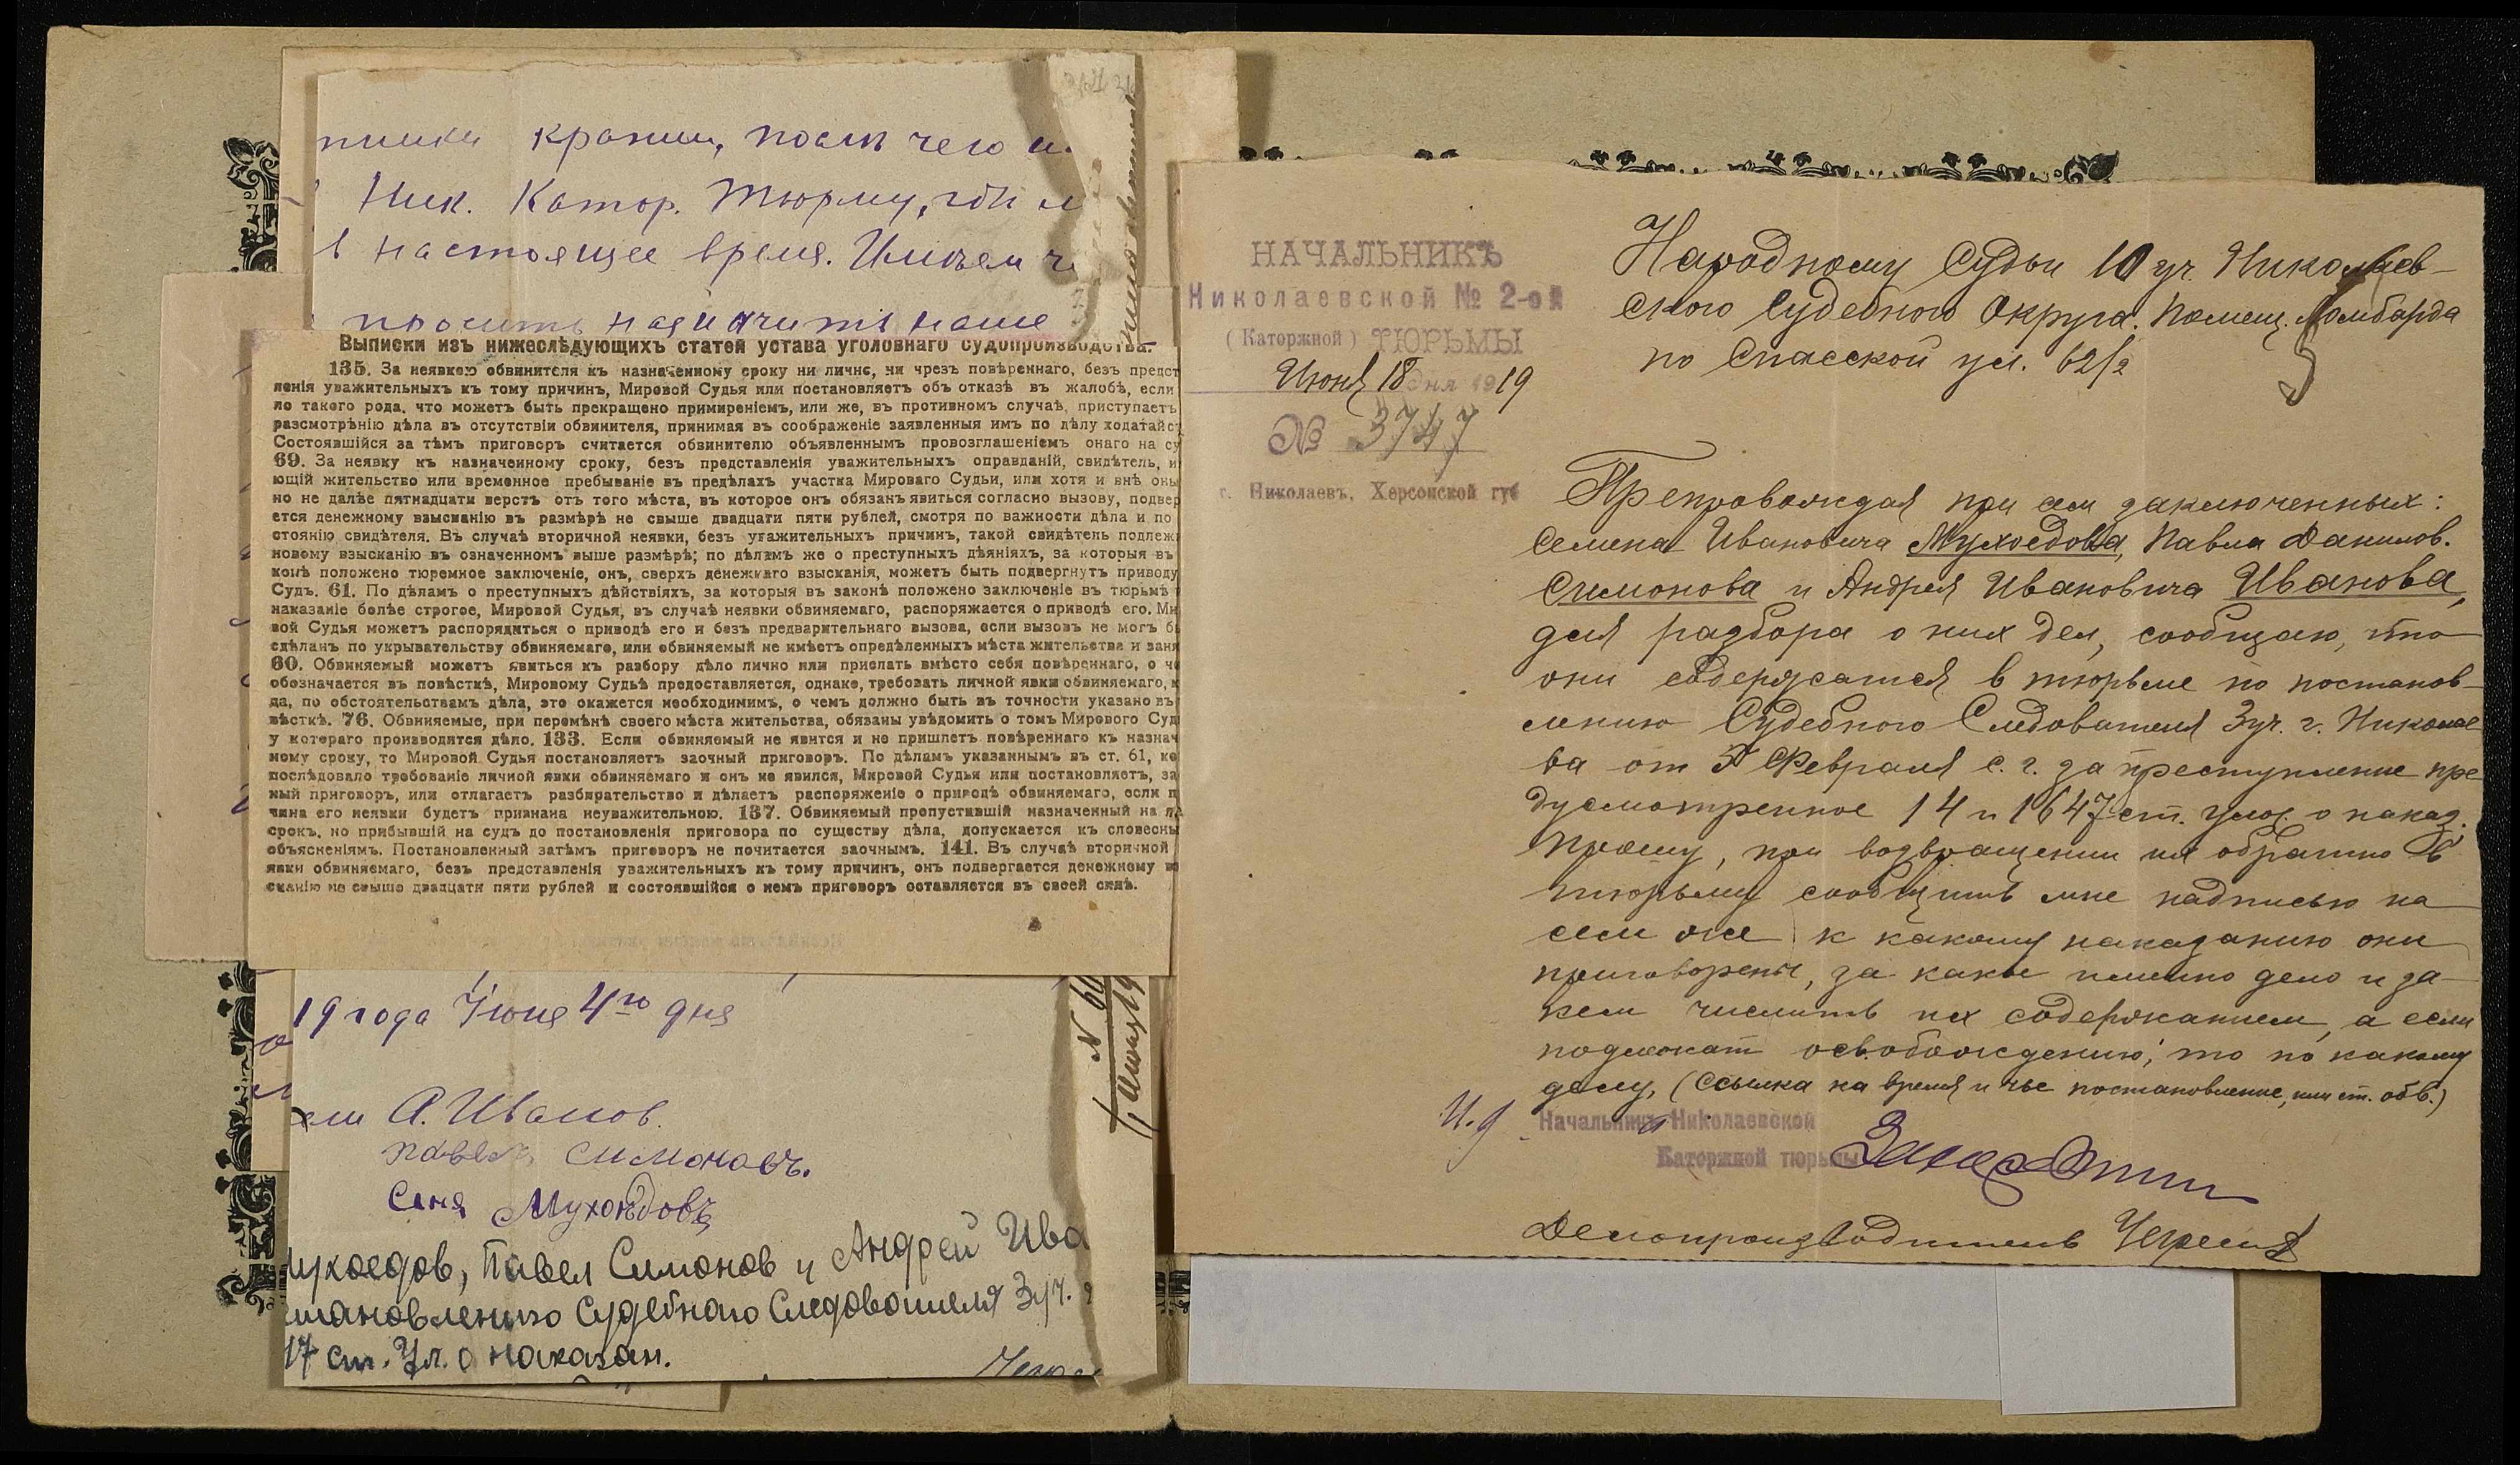 после чего
Ник. Катор. Тюрму, гдѣ
в настоящее время. Имѣем
просить назначить наше
Выписки изъ нижеслѣдующихъ статей устава уголовнаго судопроизводства.
135. За неявкою обвинителя къ назначенному сроку ни лично, ни чрезъ повѣреннаго, безъ предст
ленія уважительныхъ къ тому причинъ, Мировой Судья или постановляетъ объ отказѣ въ жалобѣ, если
ло такого рода, что можетъ быть прекращено примиреніемъ, или же, въ противномъ случаѣ, приступаетъ
разсмотрѣнію дѣла въ отсутствіи обвинителя, принимая въ соображеніе заявленныя имъ по дѣлу ходатайст
Состоявшійся за тѣмъ приговоръ считается обвинителю объявленнымъ провозглашеніемъ онаго на су
69. За неявку къ назначенному сроку, безъ представленія уважительныхъ оправданій, свидѣтель, и
ющій жительство или временное пребываніе въ предѣлахъ участка Мироваго Судьи, или хотя и внѣ оны
но не далѣе пятнадцати верстъ отъ того мѣста, въ которое онъ обязанъ явиться согласно вызову, подвер
ется денежному взысканію въ размѣрѣ не свыше двадцати пяти рублей, смотря по важности дѣла и по
стоянію свидѣтеля. Въ случаѣ вторичной неявки, безъ уважительныхъ причинъ, такой свидѣтель подлеж
новому взысканію въ означенномъ выше размѣрѣ; по дѣламъ же о преступныхъ дѣяніяхъ, за которыя въ
конѣ положено тюремное заключеніе, онъ, сверхъ денежнаго взысканія, можетъ быть подвергнутъ приводу
Судъ. 61. По дѣламъ о преступныхъ дѣйствіяхъ, за которыя въ законѣ положено заключеніе въ тюрьмѣ
наказаніе болѣе строгое, Мировой Судья, въ случаѣ неявки обвиняемаго, распоряжается о приводѣ его. Ми
вой Судья можетъ распорядиться о приводѣ его и безъ предварительнаго вызова, если вызовъ не могъ б
сдѣланъ по укрывательству обвиняемаго, или обвиняемый не имѣетъ опредѣленныхъ мѣста жительства и заня
60. Обвиняемый можетъ явиться къ разбору дѣло лично или прислать вмѣсто себя повѣреннаго, о че
обозначается въ повѣсткѣ, Мировому Судьѣ предоставляется, однако, требовать личной явки обвиняемаго, к
да, по обстоятельствамъ дѣла, это окажется необходимымъ, о чемъ должно быть въ точности указано въ
вѣсткѣ. 76. Обвиняемые, при перемѣнѣ своего мѣста жительства, обязаны увѣдомить о томъ Мирового Суд
у котораго производится дѣло. 133. Если обвиняемый не явится и не пришлетъ повѣреннаго къ назнач
ному сроку, то Мировой Судья постановляетъ заочный приговоръ. По дѣламъ указаннымъ въ ст. 61, ко
послѣдовало требованіе личной явки обвиняемаго и онъ не явился, Мировой Судья или постановляетъ, за
ный приговоръ, или отлагаетъ разбирательство и дѣлаетъ распоряженіе о приводѣ обвиняемаго, если п
чина его неявки будетъ признана неуважительною. 137. Обвиняемый пропустившій назначенный на
срокъ, но прибывшій на судъ до постановленія приговора по существу дѣла, допускается къ словесны
объясненіямъ. Постановленный затѣмъ приговоръ не почитается заочнымъ. 141. Въ случаѣ вторичной
явки обвиняемаго, безъ представленія уважительныхъ къ тому причинъ, онъ подвергается денежному
сканію не свыше двадцати пяти рублей и состоявшійся о немъ приговоръ оставляется въ своей силѣ.
19 года Іюня 4го дня
А. Иванов.
Павелъ Симоновъ.
Сеня Мухоѣдовъ
Мухоедов, Павел Симонов и Андрей Ива
становлению Судебного Следователя 3 уч.
17 ст. Ул. о наказан.
НАЧАЛЬНИКЪ
Николаевской № 2-ой
(Каторжной) ТЮРЬМЫ
Июня 18 дня 1919
№ 3747
г. Николаевъ, Херсонской губ
Народному Судьи 10 уч. Николаев-
ского Судебного Округа. Помещ. Ломбарда
по Спасской ул. 62/2
Препровождая при сем заключенных:
Семена Ивановича Мухоедова, Павла Данилов.
Симонова и Андрея Ивановича Иванова,
для разбора о них дел, сообщаю, что
они содержатся в тюрьме по постанов-
лению Судебного Следователя 3 уч. г. Николае-
ва от 5 Февраля с. г. за преступление пре-
дусмотренное 14 и 1647 ст. улож. о наказ.
Прошу, при возвращении их обратно в
тюрьму сообщить мне надписью на
сем же к какому наказанию они
приговорены, за какое именно дело и за
кем числить их содержанием, а если
подлежат освобождению, то по какому
делу, (ссылка на время и чье постановление, или ст. обв.)
И. д. Начальника Николаевской
Каторжной тюрьмы
Делопроизводитель